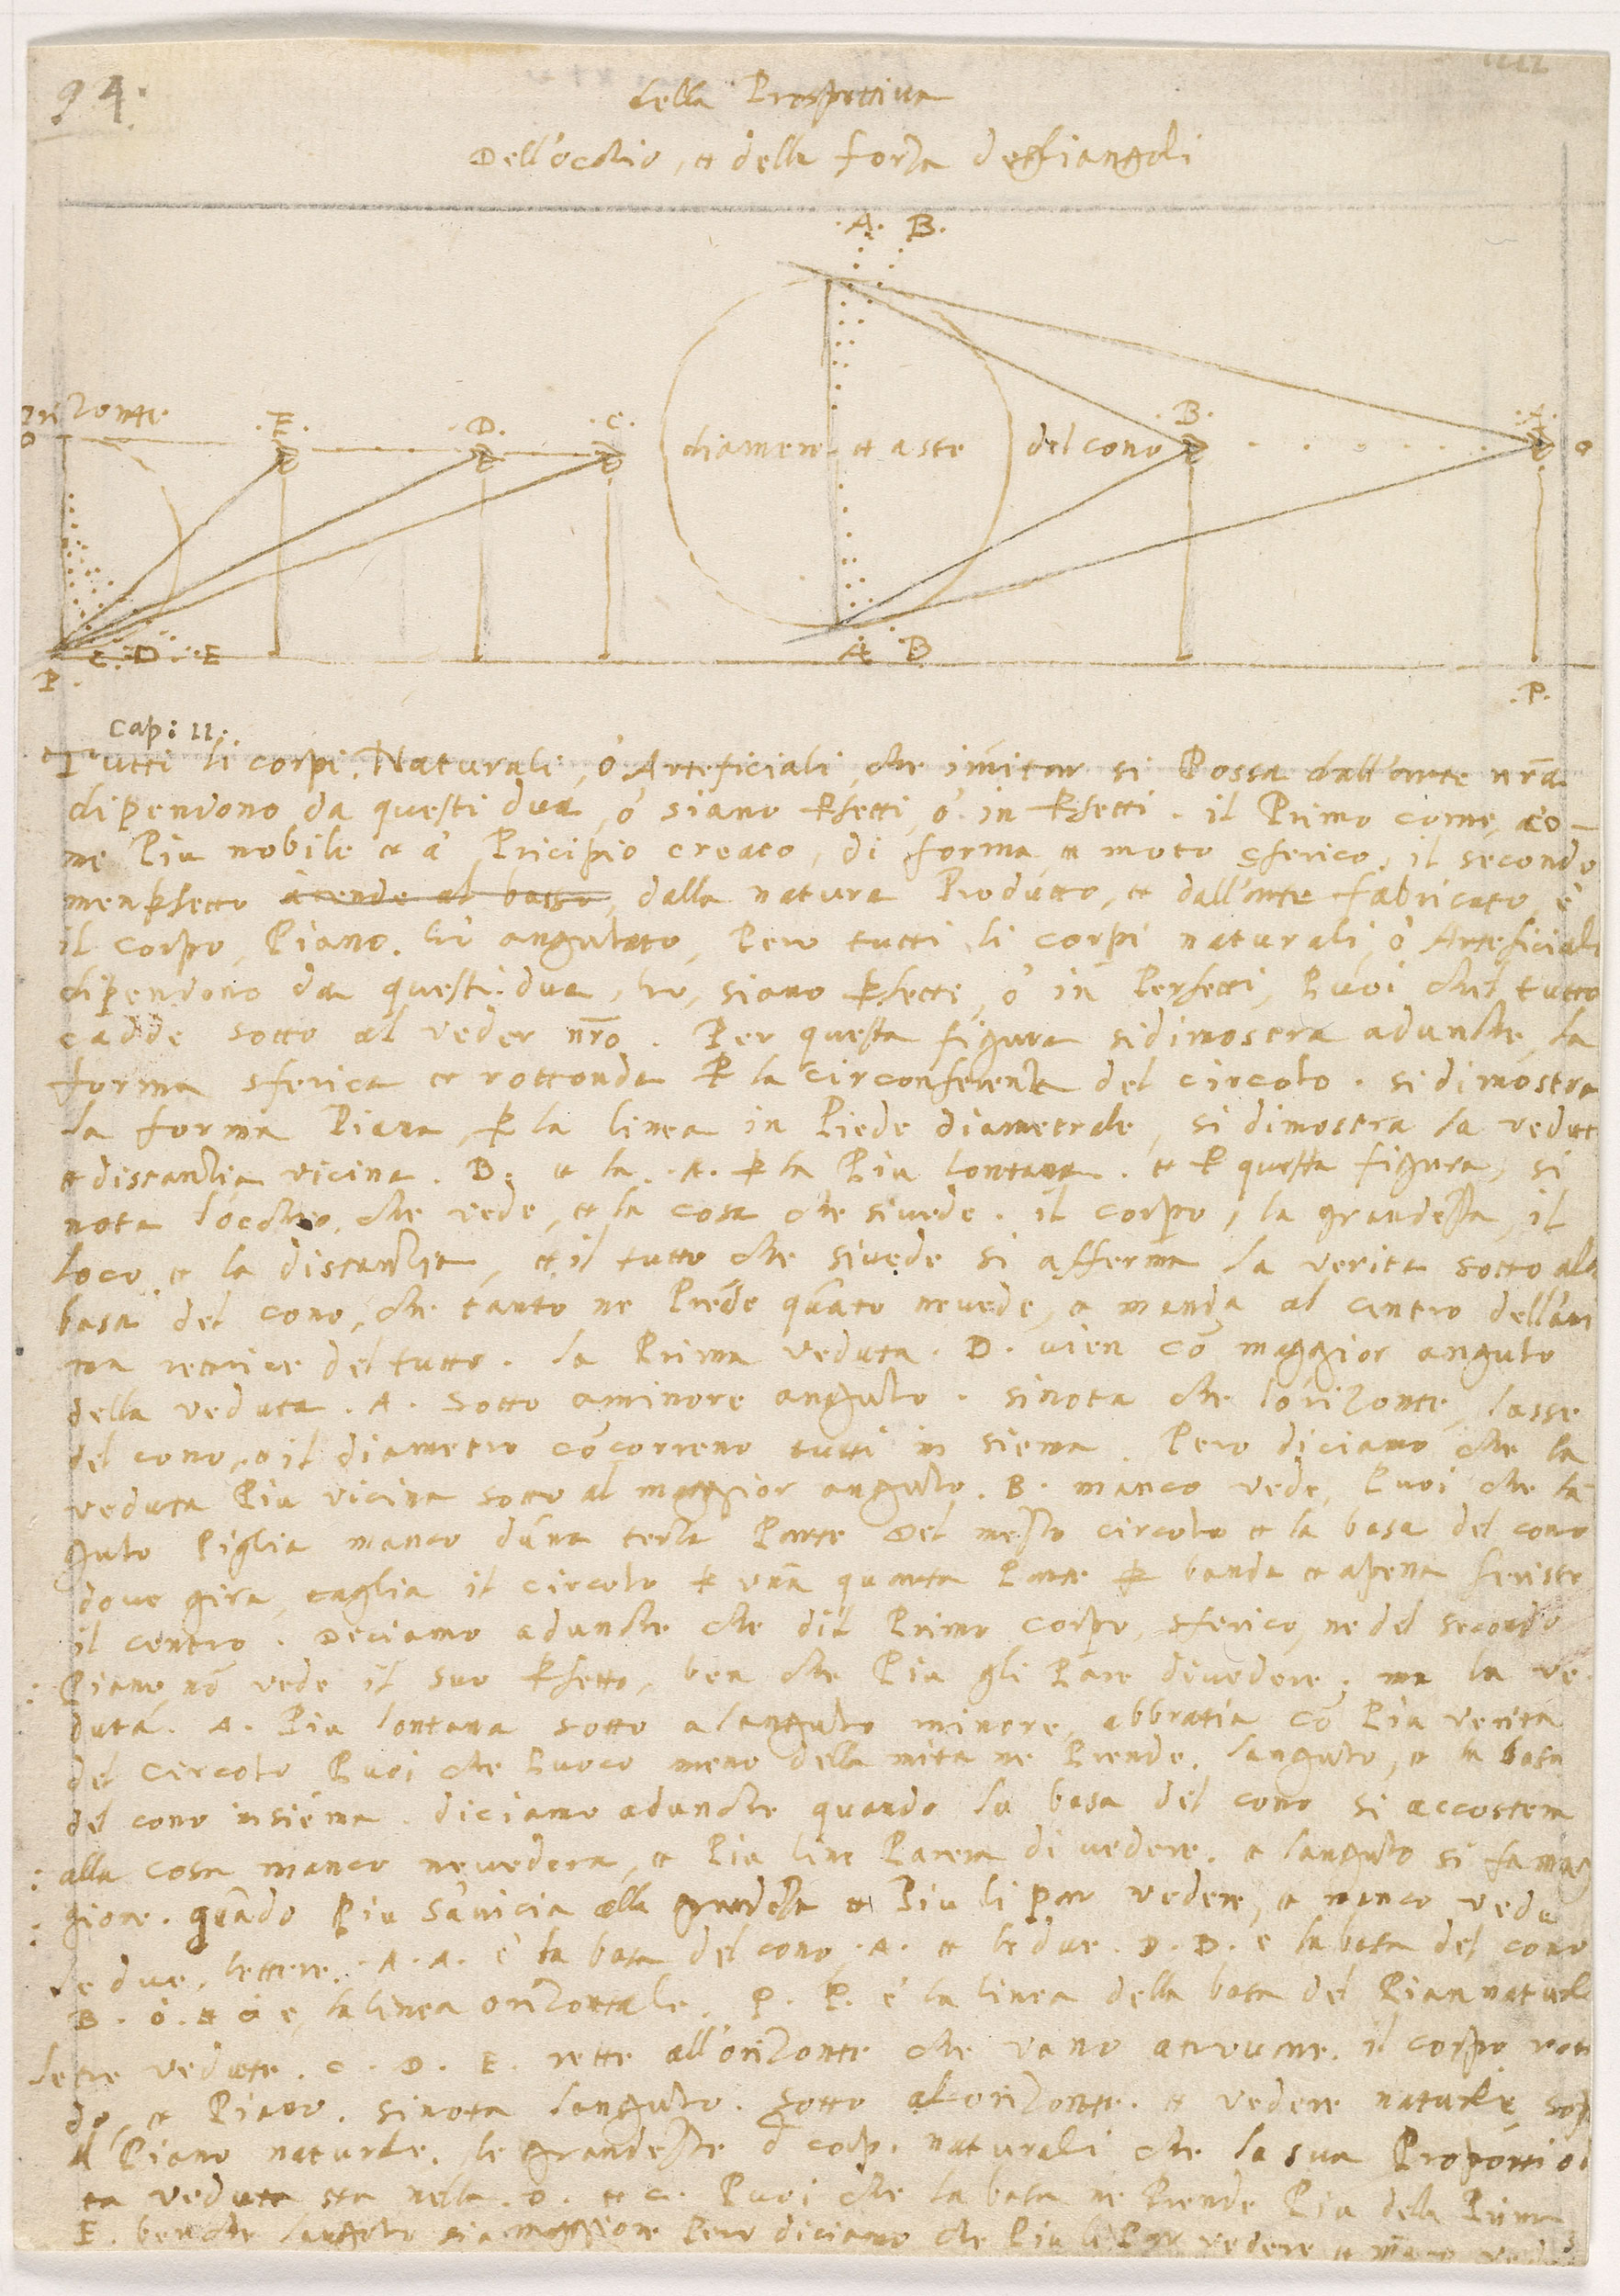 94.
della Prospettiva
Dell'occhio, et della forza degliangoli
.A. B.
orizonte. .E. .D. .C. diametro et aste del cono .B. .A.
o o
A B
C. D. E
P. .P.
Cap: 11.
Tutti li corpi, Naturali, ó Arteficiali, che imitar si Possa dall'arte nr̃a
dipendono da questi dua, ó siano ꝑfetti, ó in ꝑfetti. il Primo come, co-
me Piu nobile et a Pricipio creato, di forma et moto sferico, il secondo
menꝑfetto dalla natura Produtto, et dall'arte fabricato, é
il corpo, Piano. hó angulato, Pero tutti li corpi naturali, ó Arteficiali
dipendono da questi dua, ho, siano ꝑfetti, ó in Perfetti, Puoi chel tutto
cadde sotto al veder nr̃o. Per questa figura sidimostra adunche, la
forma sferica et rottonda ꝑ la circonferentia del circolo. si dimostra
la forma Piana, ꝑ la linea in Piede diametrale, si dimostra la vedut
et distantia vicina. B. et la .A. ꝑ la Piu lontana. et ꝑ questa figura, si
nota locchio, che vede, et la cosa che sivede. il corpo, la grandeza, il
loco, et la distantia, et il tutto che sivede si afferma la verita sotto alla
basa del cono, che tanto ne Prẽde quãto nevede, et manda al centro dell'ani
ma rettrice del tutto. la Prima veduta. B. vien cõ maggior angulo
della veduta. A. sotto aminore angulo. sinota che lorizonte, lasse
del cono, o il diametro cõcorreno tutti in siema. Pero diciamo che la
veduta Piu vicina sotto al maggior angulo. B. manco vede, Puoi che lã
gulo Piglia manco dũna terza Parte del mezo circolo et la basa del cono
dove gira, taglia il circolo ꝑ vnã quarta Parte ꝑ banda et apena ferisce
il centro. Diciamo adunche che dil Primo corpo, sferico, ne del secondo
Piano, nõ vede il suo ꝑfetto, ben che Piu gli Pare divedere. ma la ve-
duta. A. Piu lontana sotto alangulo minore, abbratia cõ Piu verita
del circolo Puoi che Puoco meno della mita ne Prende. langulo, et la basa
del cono insiema. diciamo adunche quando la basa del cono si accostera
alla cosa manco nevedera, et Piu line Parera di vedere. et langulo si fa mag
giore. quãdo Piu s'avicia alla grandeza et Piu li par vedere, et manco vedu
le due. lettere. .A. A. é la basa del cono .A. et le due. B. B. e la basa del cono
B. o. et o e, la linea orizontale. P. P. é la linea della basa del Pian naturale
letre vedute. C. D. E. rette all'orizonte che vano atrovare. il corpo roton
do, et Piano. sinota langulo. sotto al orizonte. et vedere naturale, sop
il Piano naturale. le grandeze d corp. naturali che la sua Proportio
ta veduta sta nella. D. et C. Puoi che la basa ne Prende Piu della Prima
E. benche langulo sia maggiore Pero diciamo che Piu li Par vedere et